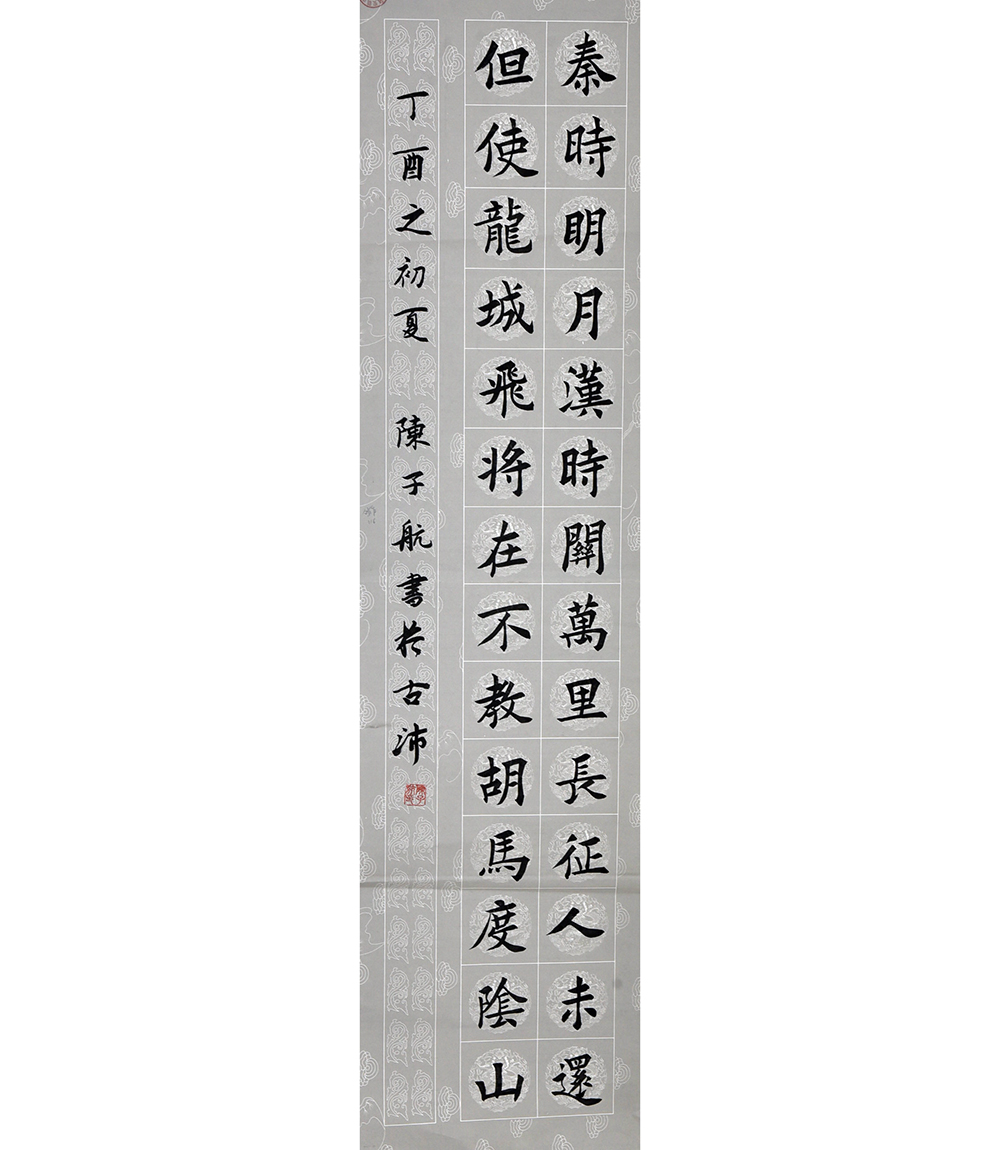 秦時明月漢時關萬里長征人未還
但使龍城飛将在不教胡馬度陰山
丁酉之初夏 陳子航書於古沛